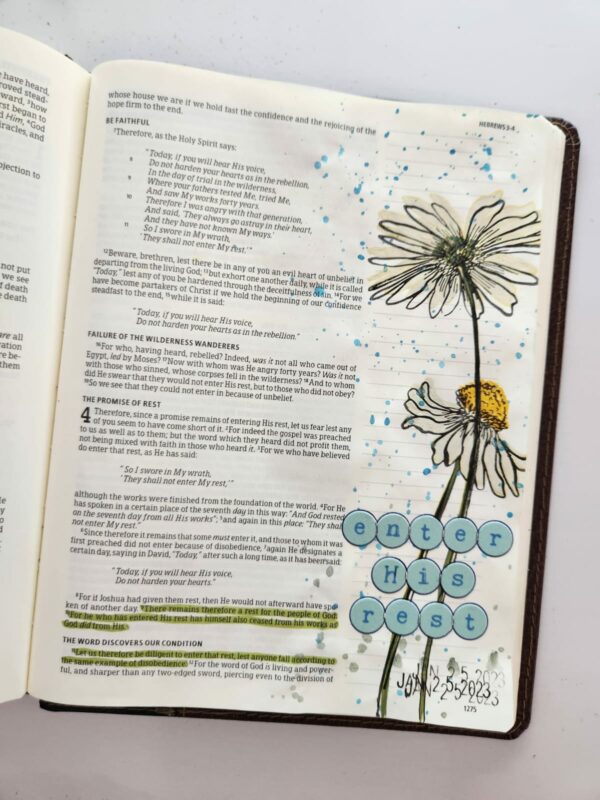 have heard,
proved stead-
ward, ³how
rst began to
d Him, ⁴God
iracles, and
bjection to
not put
we see
f death
e death
are all
ration
re be-
them
HEBREWS 3–4
whose house we are if we hold fast the confidence and the rejoicing of the
hope firm to the end.
BE FAITHFUL
⁷Therefore, as the Holy Spirit says:
"Today, if you will hear His voice,
8 Do not harden your hearts as in the rebellion,
In the day of trial in the wilderness,
9 Where your fathers tested Me, tried Me,
And saw My works forty years.
10 Therefore I was angry with that generation,
And said, 'They always go astray in their heart,
And they have not known My ways.'
11 So I swore in My wrath,
'They shall not enter My rest.'"
¹²Beware, brethren, lest there be in any of you an evil heart of unbelief in
departing from the living God; ¹³but exhort one another daily, while it is called
"Today," lest any of you be hardened through the deceitfulness of sin. ¹⁴For we
have become partakers of Christ if we hold the beginning of our confidence
steadfast to the end, ¹⁵while it is said:
"Today, if you will hear His voice,
Do not harden your hearts as in the rebellion."
FAILURE OF THE WILDERNESS WANDERERS
¹⁶For who, having heard, rebelled? Indeed, was it not all who came out of
Egypt, led by Moses? ¹⁷Now with whom was He angry forty years? Was it not
with those who sinned, whose corpses fell in the wilderness? ¹⁸And to whom
did He swear that they would not enter His rest, but to those who did not obey?
¹⁹So we see that they could not enter in because of unbelief.
THE PROMISE OF REST
4 Therefore, since a promise remains of entering His rest, let us fear lest any
of you seem to have come short of it. ²For indeed the gospel was preached
to us as well as to them; but the word which they heard did not profit them,
not being mixed with faith in those who heard it. ³For we who have believed
do enter that rest, as He has said:
"So I swore in My wrath,
'They shall not enter My rest,'"
although the works were finished from the foundation of the world. ⁴For He
has spoken in a certain place of the seventh day in this way: "And God rested
on the seventh day from all His works"; ⁵and again in this place: "They shall
not enter My rest."
⁶Since therefore it remains that some must enter it, and those to whom it was
first preached did not enter because of disobedience, ⁷again He designates a
certain day, saying in David, "Today," after such a long time, as it has been said:
"Today, if you will hear His voice,
Do not harden your hearts."
⁸For if Joshua had given them rest, then He would not afterward have spo-
ken of another day. ⁹There remains therefore a rest for the people of God.
¹⁰For he who has entered His rest has himself also ceased from his works as
God did from His.
THE WORD DISCOVERS OUR CONDITION
¹¹Let us therefore be diligent to enter that rest, lest anyone fall according to
the same example of disobedience. ¹²For the word of God is living and power-
ful, and sharper than any two-edged sword, piercing even to the division of
enter
His
rest
JAN 25 2023
JAN 25 2023
JAN 25 2023
1275